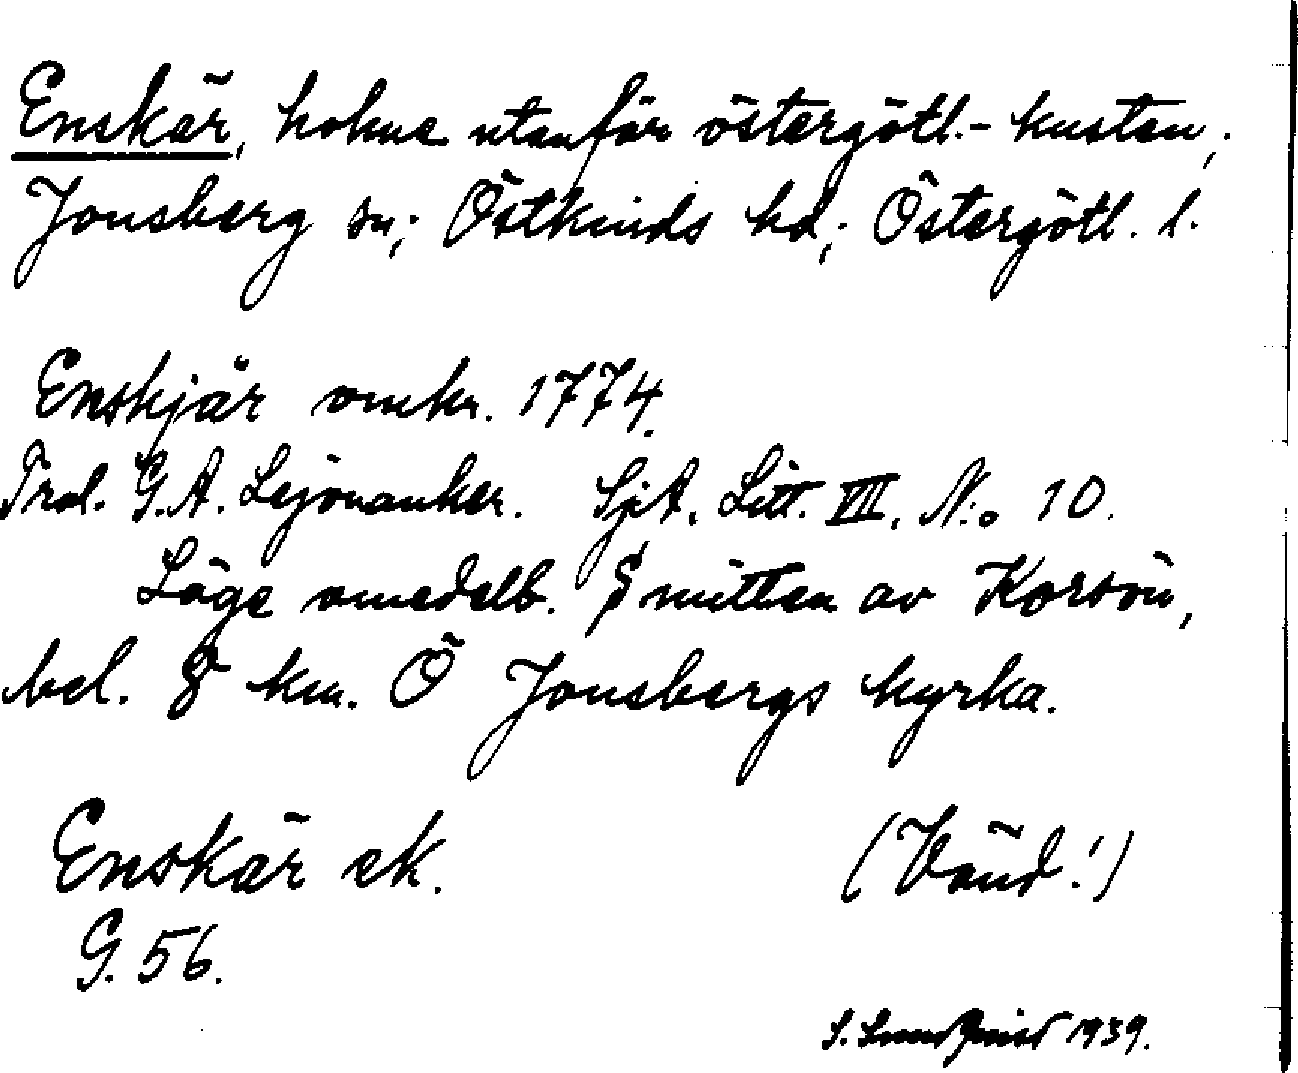 Enskär, holme utanför östergötl.-kusten,
Jonsberg sn; Östkinds hd; Östergötl. l.
Enskjär omkr. 1774.
Trol. G.A. Lejonanker. SjA, Litt. VII, N:o 10.
Läge omedelb. S mitten av Korsön,
bel. 8 km. Ö Jonsbergs kyrka.
Enskär ek. (Vänd!)
G. 56.
S. Lundqvist 1939.